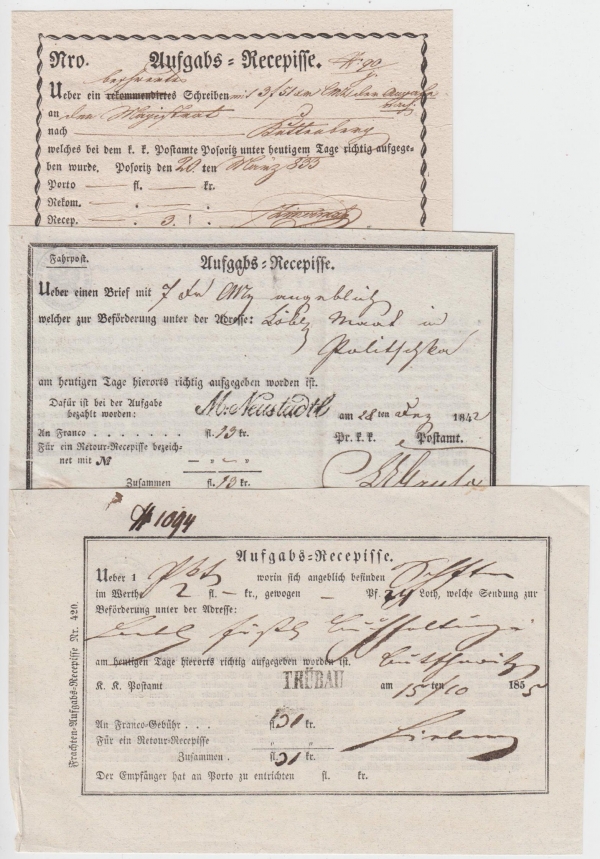 Nro. Aufgabs-Recepisse. N: 99
beschwertes
Ueber ein rekommendirtes Schreiben mit
an den Magistrat
nach Kuttenberg
welches bei dem k. k. Postamte Posoritz unter heutigem Tage richtig aufgege-
ben wurde. Posoritz den 20. ten März 833
Porto — fl. — kr.
Rekom. — . — .
Recep. — . 3. .
Fahrpost.
Aufgabs-Recepisse.
Ueber einen Brief mit 7 fr CMz angeblich
welcher zur Beförderung unter der Adresse: Löbl Magt in
Politschka
am heutigen Tage hierorts richtig aufgegeben worden ist.
Dafür ist bei der Aufgabe
bezahlt worden: M. Neustadtl am 28 ten Dez 1842
An Franco . . . . . . . fl. 13 kr. Pr. k. k. Postamt.
Für ein Retour-Recepisse bezeich-
net mit № — „ — „ —
Zusammen fl. 13 kr.
# 1094
Aufgabs-Recepisse.
Ueber 1 worin sich angeblich befinden Schften
im Werthe 2 fl. — kr., gewogen — Pf. 24 Loth, welche Sendung zur
Beförderung unter der Adresse:
am heutigen Tage hierorts richtig aufgegeben worden ist.
K. K. Postamt TRÜBAU am 15 ten /10 1855
An Franco-Gebühr . . . fl. 31 kr.
Für ein Retour-Recepisse „ „
Zusammen . fl. 31 kr.
Der Empfänger hat an Porto zu entrichten fl. kr.
Frachten-Aufgabs-Recepisse Nr. 420.